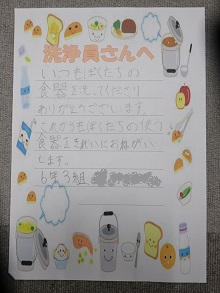 洗浄員さんへ
いつもぼくたちの
食器を洗ってくださり
ありがとうございます。
これからもぼくたちの使う
食器をきれいにおねがい
します。
6年3組